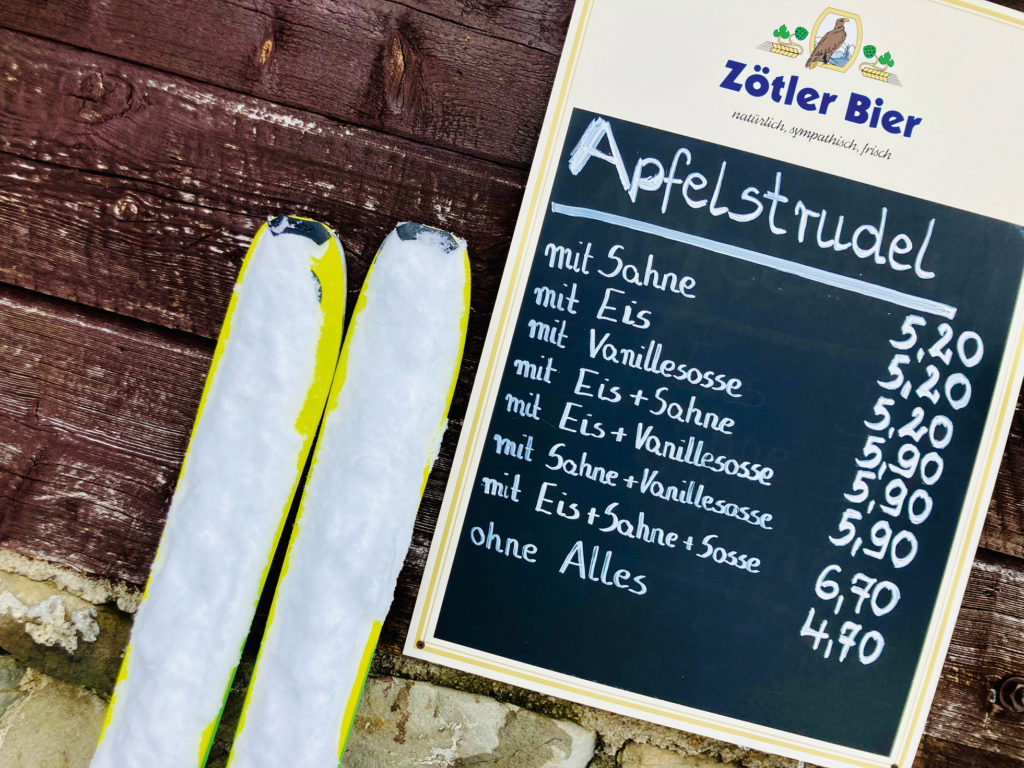 Zötler Bier
natürlich, sympathisch, frisch
Apfelstrudel
mit Sahne 5,20
mit Eis 5,20
mit Vanillesosse 5,20
mit Eis + Sahne 5,90
mit Eis + Vanillesosse 5,90
mit Sahne + Vanillesosse 5,90
mit Eis + Sahne + Sosse 6,70
ohne Alles 4,70